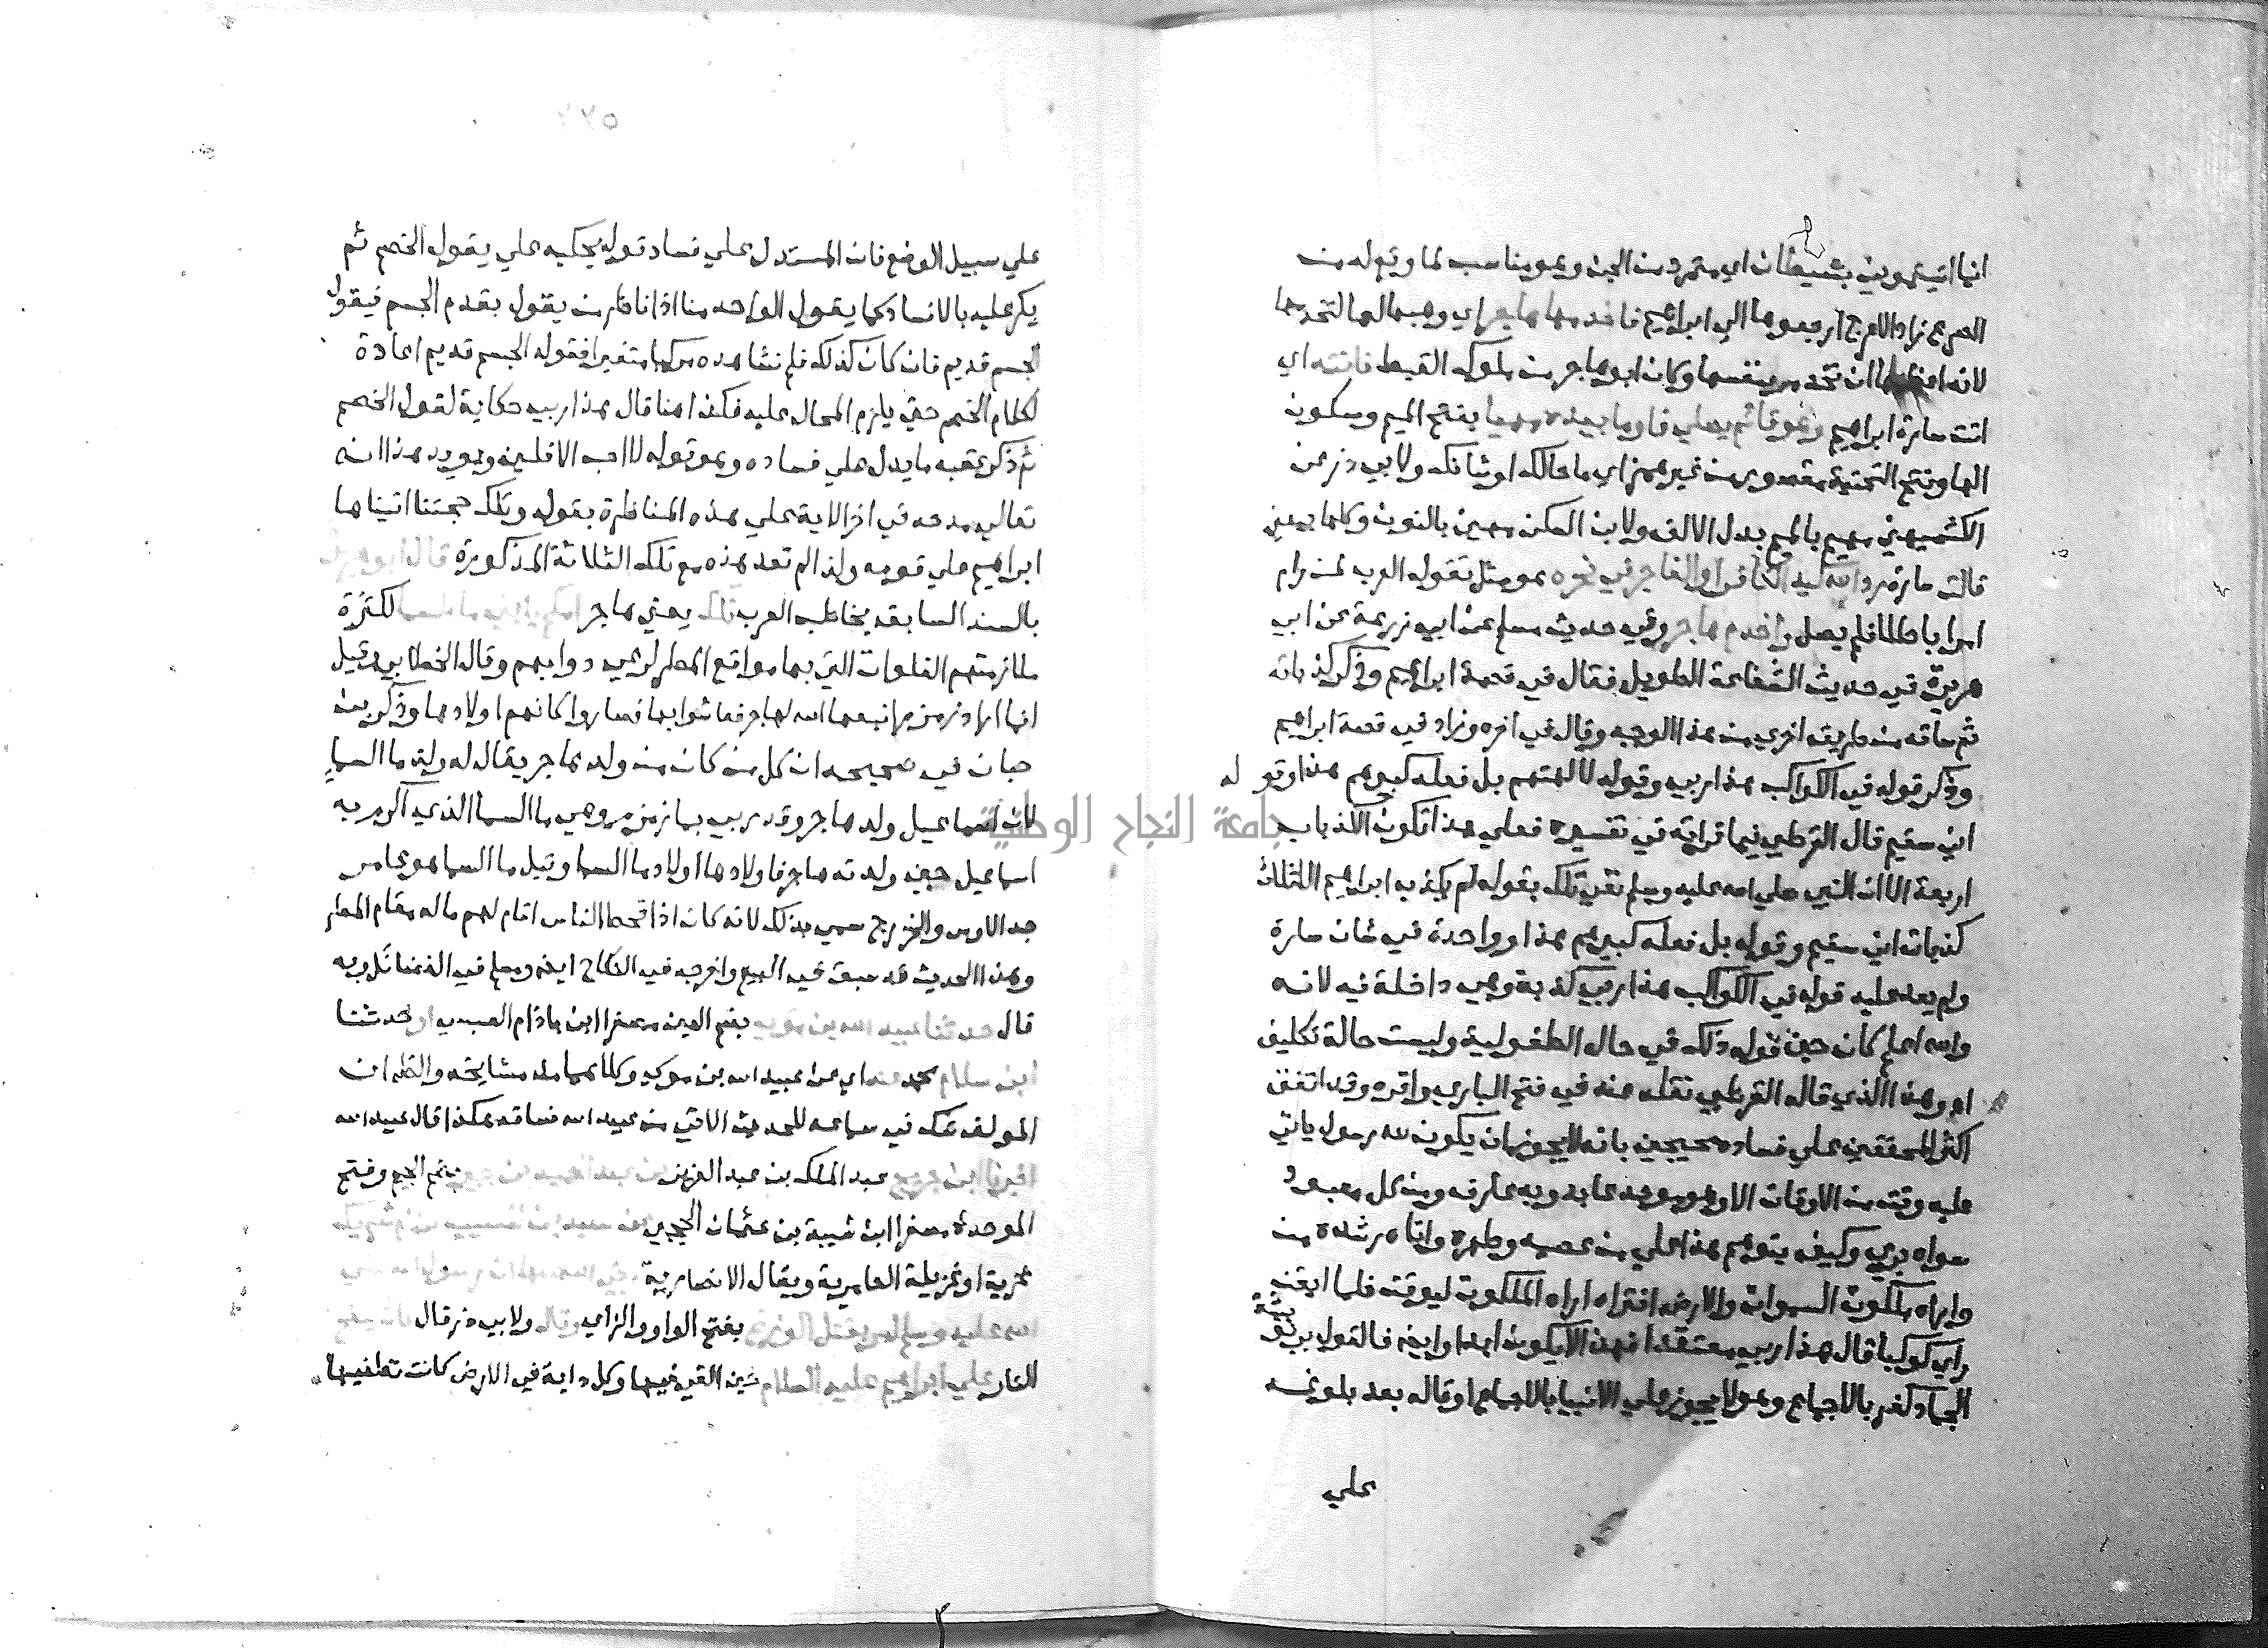 انما اتيتموني بشيطان اي متمرد من الجن وهو مناسب لما وقع له من
الصرع زاد الاعرج ارجعوها الي ابراهيم فاخدمها هاجر اي وهبها لها لتخدمها
لانه اعظمها ان تخدم بنفسها وكان ابو هاجر من ملوك القبط فاتته اي
اتت سارة ابراهيم وهو قائم يصلي فاوما بيده مهيا بفتح الميم وسكون
الها وفتح التحتية مقصور من غير همز اي ما حالك او شانك ولابي ذر عن
الكشميهني مهيم بالميم بدل الالف ولابن السكن مهين بالنون وكلها بمعني
قالت سارة رد الله كيد الكافر او الفاجر في نحره هو مثل تقوله العرب لمن رام
امرا باطلا فلم يصل واخدم هاجر وفي حديث مسلم عن ابي زرعة عن ابي
هريرة في حديث الشفاعة الطويل فقال في قصة ابراهيم وذكر كذباته
ثم ساقه من طريق اخري من هذا الوجه وقال في اخره وزاد في قصة ابراهيم
وذكر قوله في الكواكب هذا ربي وقوله لالهتهم بل فعله كبيرهم هذا وقوله
اني سقيم قال القرطبي فيما قراته في تفسيره فعلي هذا تكون الكذبات
اربعة الا ان النبي صلي الله عليه وسلم نفي تلك بقوله لم يكذب ابراهيم الا ثلاث
كذبات اني سقيم وقوله بل فعله كبيرهم هذا وواحدة في شان سارة
ولم يعد عليه قوله في الكواكب هذا ربي كذبة وهي داخلة فيه لانه
والله اعلم كان حين قوله ذلك في حال الطفولية وليست حالة تكليف
اه وهذا الذي قاله القرطبي نقله عنه في فتح الباري واقره وقد اتفق
اكثر المحققين علي فساده محتجين بانه لا يجوز ان يكون لله رسول ياتي
عليه وقت من الاوقات الا وهو موحد عابد وبه عارف ومن كل معبود
سواه بري وكيف يتوهم هذا علي من عصمه وطهره واتاه رشده من
واراه ملكوت السموات والارض افتراه اراه الملكوت ليوقن فلما ايقن
راي كوكبا قال هذا ربي معتقدا فهذا لا يكون ابدا وايضا فالقول بربوبية
الجماد كفر بالاجماع وهو لا يجوز علي الانبيا بالاجماع او قاله بعد بلوغه
علي
علي سبيل الوضع فان المستدل علي فساد قول يحكيه علي يقول الخصم ثم
يكر عليه بالافساد كما يقول الواحد منا اذا ناظر من يقول بقدم الجسم فيقول
الجسم قديم فان كان كذلك فلم نشاهده مركبا متغيرا فقوله الجسم قديم اعادة
لكلام الخصم حتي يلزم المحال عليه فكذا هنا قال هذا ربي حكاية لقول الخصم
ثم ذكر عقبه ما يدل علي فساده وهو قوله لا احب الافلين ويويد هذا انه
تعالي مدحه في اخر الاية علي هذه المناظرة بقوله وتلك حجتنا اتيناها
ابراهيم علي قومه ولذا لم تعد هذه مع تلك الثلاثة المذكورة قال ابو هريرة
بالسند السابق يخاطب العرب تلك يعني هاجر امكم يا بني ما السما لكثرة
ملازمتهم الفلوات التي بها مواقع المطر لرعي دوابهم وقال الخطابي وقيل
انما اراد زمزم انبعها الله لهاجر فعاشوا بها فصاروا كانهم اولادها وذكر ابن
حبان في صحيحه ان كل من كان من ولد هاجر يقال له ولد ما السما
لان اسماعيل ولد هاجر وقد ربي بما زمزم وهي ما السما الذي اكرم به
اسماعيل حين ولدته هاجر فاولادها اولاد ما السما وقيل ما السما هو عامر
جد الاوس والخزرج سمي بذلك لانه كان اذا قحط الناس اقام لهم ماله مقام المطر
وهذا الحديث قد سبق في البيع واخرجه في النكاح ايضا ومسلم في الفضائل وبه
قال حدثنا عبيد الله بن موسي بضم العين مصغرا ابن باذام العبسي او حدثنا
ابن سلام محمد عنه اي عن عبيد الله بن موسي وكلاهما من مشايخه والظاهر ان
المولف شك في سماعه للحديث الاتي من عبيد الله فساقه هكذا قال عبيد الله
اخبرنا ابن جريج عبد الملك بن عبد العزيز عن عبد الحميد بن جبير بضم الجيم وفتح
الموحدة مصغرا ابن شيبة بن عثمان الحجبي عن سعيد بن المسيب عن ام شريك
غزية او غزيلة العامرية ويقال الانصارية رضي الله عنها ان رسول الله صلي
الله عليه وسلم امر بقتل الوزغ بفتح الواو والزاي وقال ولابي ذر قال كان ينفخ
النار علي ابراهيم عليه السلام حين القي فيها وكل دابة في الارض كانت تطفيها
جامعة النجاح الوطنية